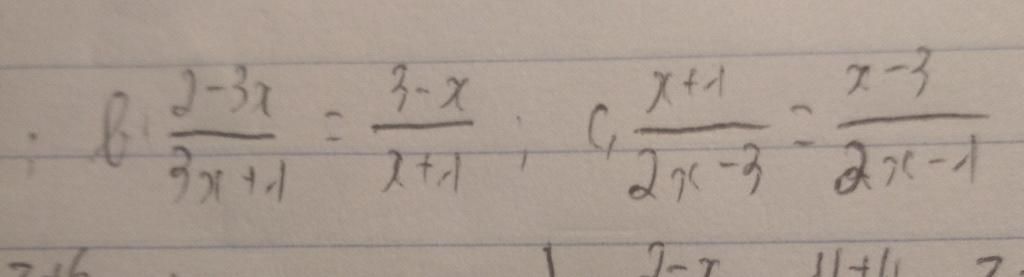 ; b. \frac{2-3x}{3x+1} = \frac{3-x}{x+1} ; c, \frac{x+1}{2x-3} = \frac{x-3}{2x-1}
2-x